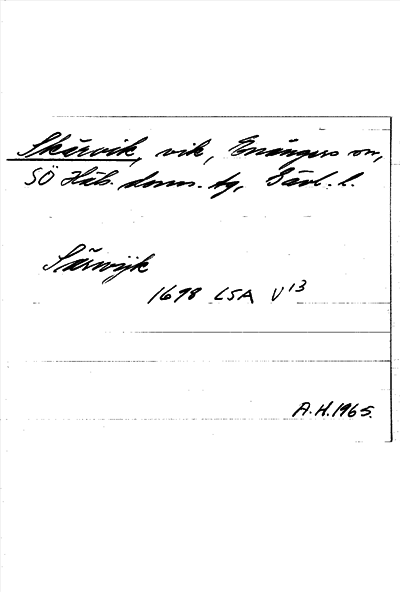 Skärvik, vik, Enångers sn,
SÖ Häls. doms. tg, Gävl. l.
Särwijk
1698 LSA V13
A.H.1965.